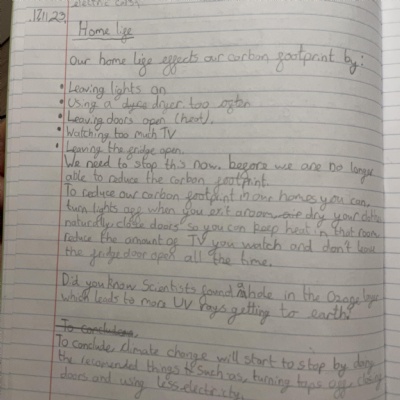 electric cars.
17.11.23
Home life
Our home life effects our carbon footprint by:
• Leaving lights on
• Using a dryer too often
• Leaving doors open (heat).
• Watching too much TV
• Leaving the fridge open.
We need to stop this now, before we are no longer
able to reduce the carbon footprint.
To reduse our carbon footprint in our homes you can,
turn lights off when you exit a room, dry your clothes
naturally, close doors so you can keep heat in that room
reduce the amount of TV you watch and don't leave
the fridge door open all the time.
Did you know Scientists found a hole in the Ozone layer
which leads to more UV rays getting to earth.
To conclude
To conclude climate change will start to stop by doing
the recomended things such as, turning taps off, closing
doors and using less electricity.